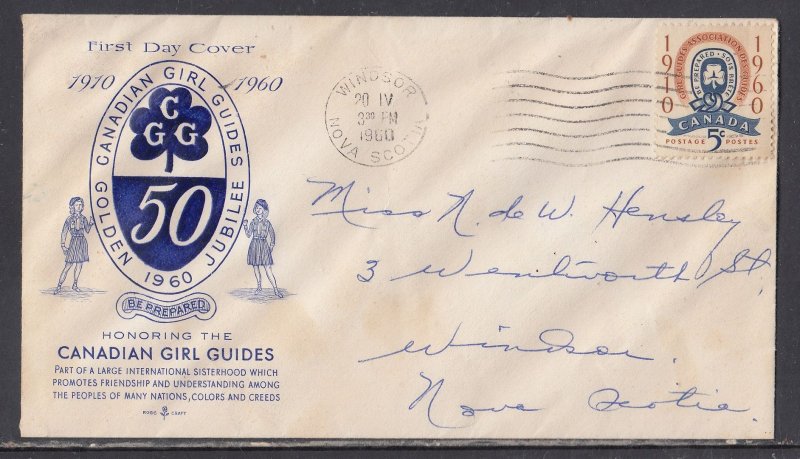 First Day Cover
1910 1960
CANADIAN GIRL GUIDES
C
G G
50
GOLDEN 1960 JUBILEE
BE PREPARED
HONORING THE
CANADIAN GIRL GUIDES
PART OF A LARGE INTERNATIONAL SISTERHOOD WHICH
PROMOTES FRIENDSHIP AND UNDERSTANDING AMONG
THE PEOPLES OF MANY NATIONS, COLORS AND CREEDS
ROSE CRAFT
WINDSOR
20 IV
3 30 PM
1960
NOVA SCOTIA
1910 1960
GIRL GUIDES ASSOCIATION DES GUIDES
BE PREPARED · SOIS PRÊTE
CANADA
POSTAGE 5c POSTES
Miss N. de W. Hensley
3 Wentworth St.
Windsor.
Nova Scotia.